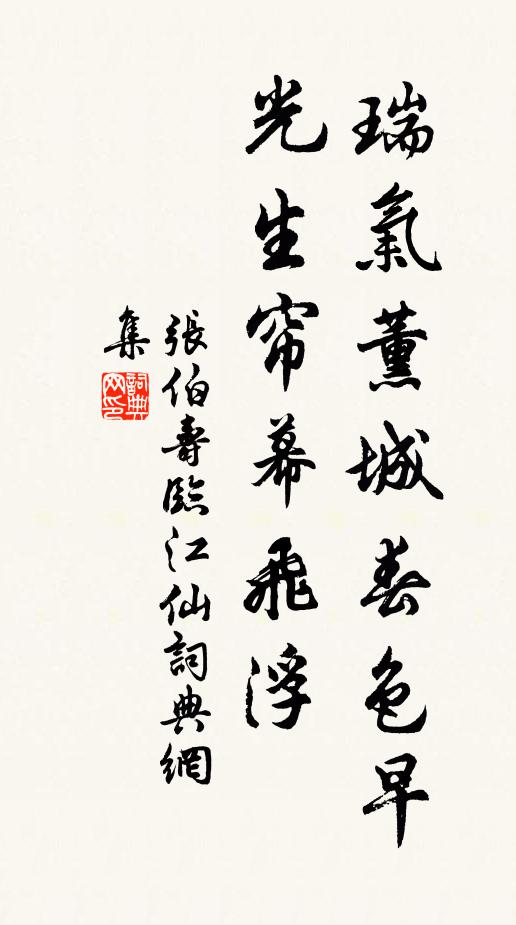 瑞氣薰城春色早
光生帘幕飛浮
張伯壽臨江仙詞典網
集
詞典
网印